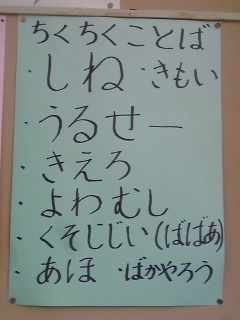 ちくちくことば
・しね ・きもい
・うるせー
・きえろ
・よわむし
・くそじじい(ばばあ)
・あほ ・ばかやろう